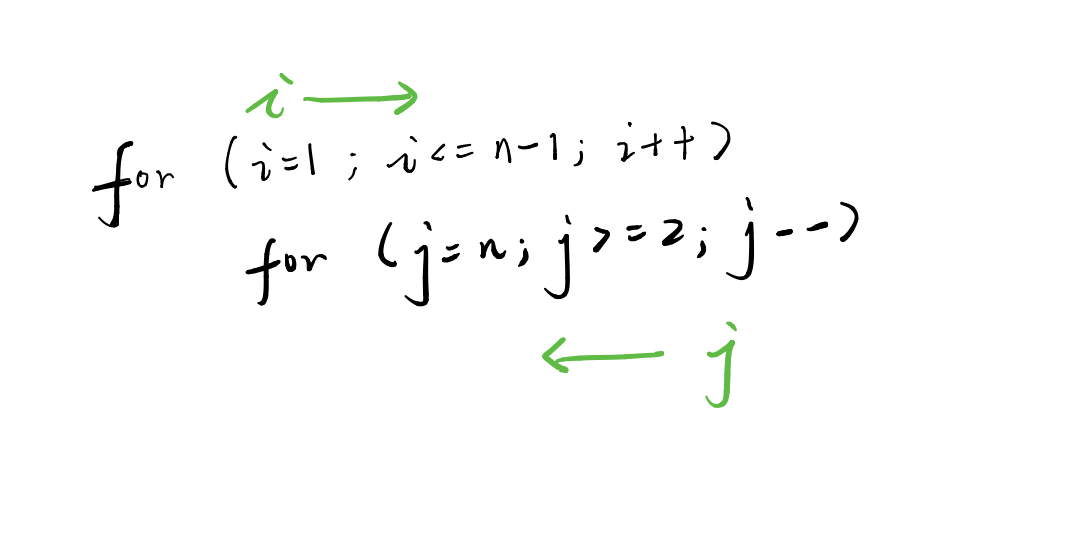 i →
for (i=1; i<=n-1; i++)
for (j=n; j>=2; j--)
← j